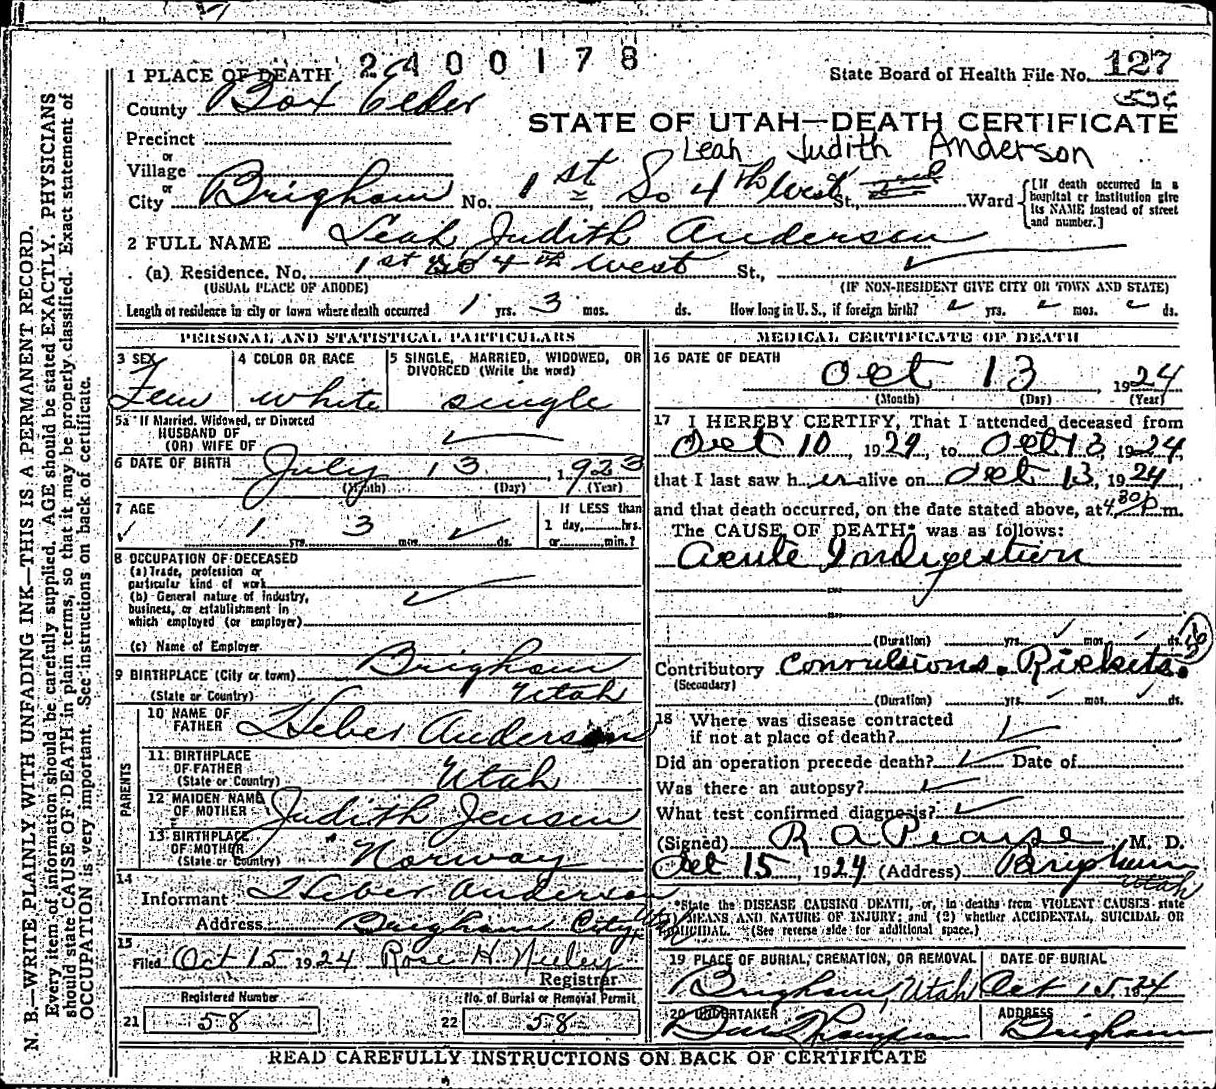 2400178
1 PLACE OF DEATH
State Board of Health File No. 127
County Box Elder
STATE OF UTAH—DEATH CERTIFICATE
Precinct
Leah Judith Anderson
or
Village
or
City Brigham No. 1st So 4th West St., Ward
[If death occurred in a hospital or institution give its NAME instead of street and number.]
2 FULL NAME Leah Judith Anderson
(a) Residence. No. 1st So 4th West St.,
(USUAL PLACE OF ABODE) (IF NON-RESIDENT GIVE CITY OR TOWN AND STATE)
Length of residence in city or town where death occurred 1 yrs. 3 mos. ds. How long in U. S., if foreign birth? yrs. mos. ds.
PERSONAL AND STATISTICAL PARTICULARS
3 SEX 4 COLOR OR RACE 5 SINGLE, MARRIED, WIDOWED, OR
DIVORCED (Write the word)
Fem white single
5a If Married, Widowed, or Divorced
HUSBAND OF
(OR) WIFE OF
6 DATE OF BIRTH July 13, 1923
(Month) (Day) (Year)
7 AGE If LESS than
1 day, hrs.
1 yrs. 3 mos. ds. or min.?
8 OCCUPATION OF DECEASED
(a) Trade, profession or
particular kind of work
(b) General nature of industry,
business, or establishment in
which employed (or employer)
(c) Name of Employer
9 BIRTHPLACE (City or town) Brigham
(State or Country) Utah
PARENTS
10 NAME OF
FATHER Heber Anderson
11 BIRTHPLACE
OF FATHER
(State or Country) Utah
12 MAIDEN NAME
OF MOTHER Judith Jensen
13 BIRTHPLACE
OF MOTHER
(State or Country) Norway
14
Informant Heber Anderson
Address Brigham City, Utah
15
Filed Oct 15 1924 Rose H Neeley
Registrar
Registered Number No. of Burial or Removal Permit
21 58 22 58
MEDICAL CERTIFICATE OF DEATH
16 DATE OF DEATH
Oct 13, 1924
(Month) (Day) (Year)
17 I HEREBY CERTIFY, That I attended deceased from
Oct 10, 1924, to Oct 13, 1924,
that I last saw her alive on Oct 13, 1924,
and that death occurred, on the date stated above, at 4:30 p.m.
The CAUSE OF DEATH* was as follows:
Acute Indigestion
(Duration) yrs. mos. ds.
Contributory Convulsions. Rickets.
(Secondary)
(Duration) yrs. mos. ds.
18 Where was disease contracted
if not at place of death?
Did an operation precede death? Date of
Was there an autopsy?
What test confirmed diagnosis?
(Signed) R A Pearse, M. D.
Oct 15, 1924 (Address) Brigham
Utah
*State the DISEASE CAUSING DEATH, or, in deaths from VIOLENT CAUSES state
(1) MEANS AND NATURE OF INJURY; and (2) whether ACCIDENTAL, SUICIDAL OR
HOMICIDAL. (See reverse side for additional space.)
19 PLACE OF BURIAL, CREMATION, OR REMOVAL DATE OF BURIAL
Brigham, Utah Oct 15, 1924
20 UNDERTAKER ADDRESS
Thompson Brigham
READ CAREFULLY INSTRUCTIONS ON BACK OF CERTIFICATE
N. B.—WRITE PLAINLY WITH UNFADING INK—THIS IS A PERMANENT RECORD.
Every item of information should be carefully supplied. AGE should be stated EXACTLY. PHYSICIANS
should state CAUSE OF DEATH in plain terms, so that it may be properly classified. Exact statement of
OCCUPATION is very important. See instructions on back of certificate.